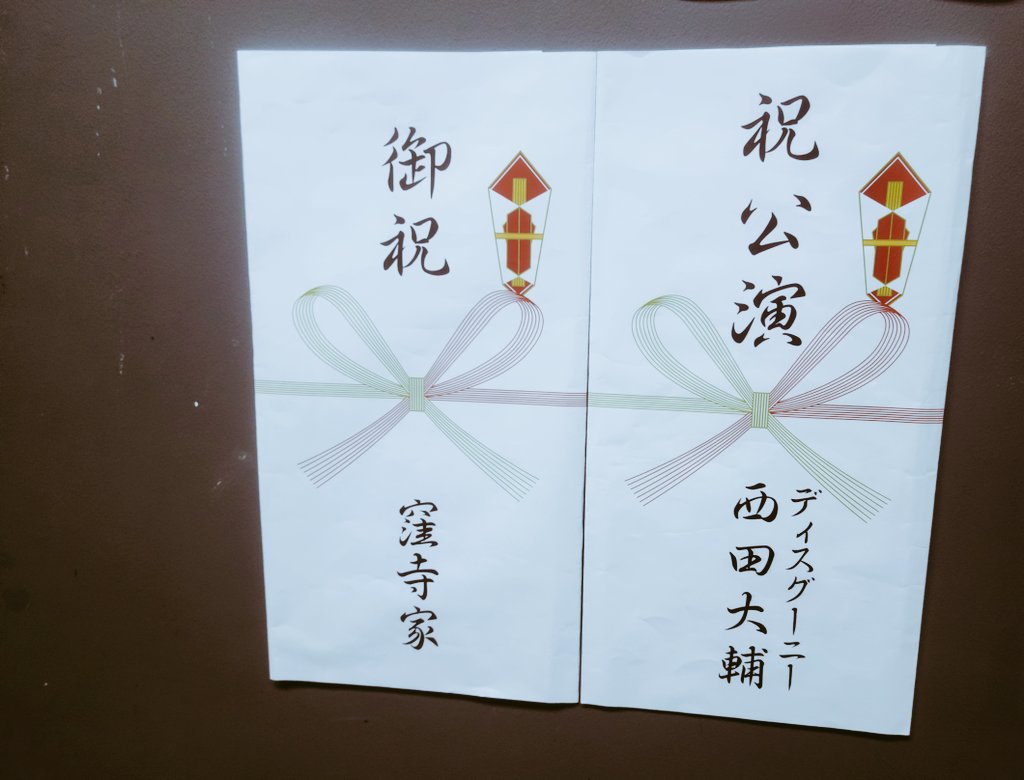 祝公演
ディスグーニー
西田大輔
御祝
窪寺家